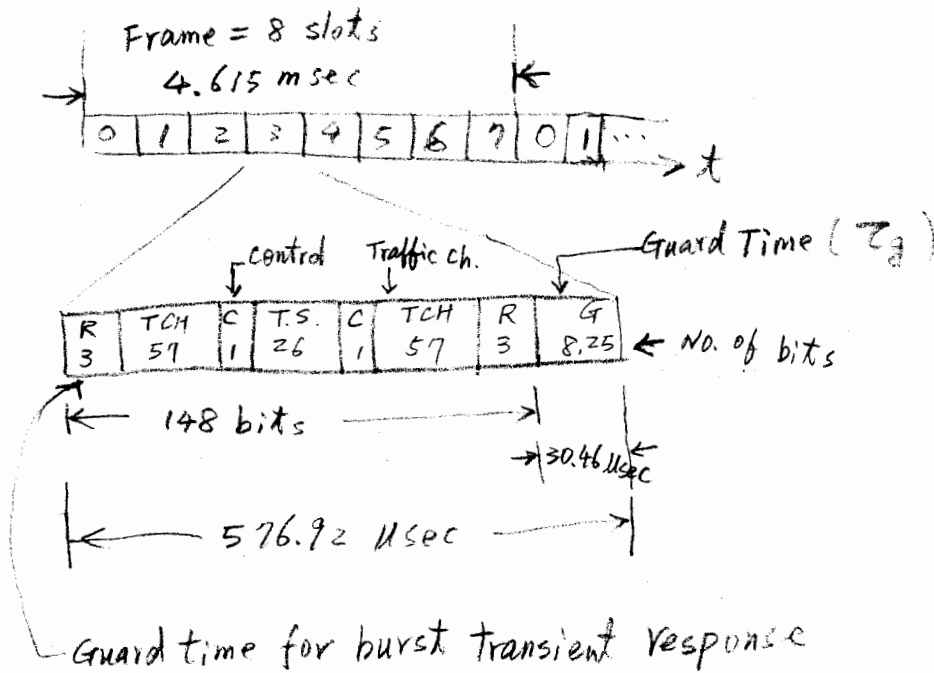 Frame = 8 slots
4.615 msec
0 1 2 3 4 5 6 7 0 1 ...
t
control Traffic ch. Guard Time (τg)
R TCH C T.S. C TCH R G
3 57 1 26 1 57 3 8.25 ← No. of bits
148 bits
30.46 μsec
576.92 μsec
Guard time for burst transient response